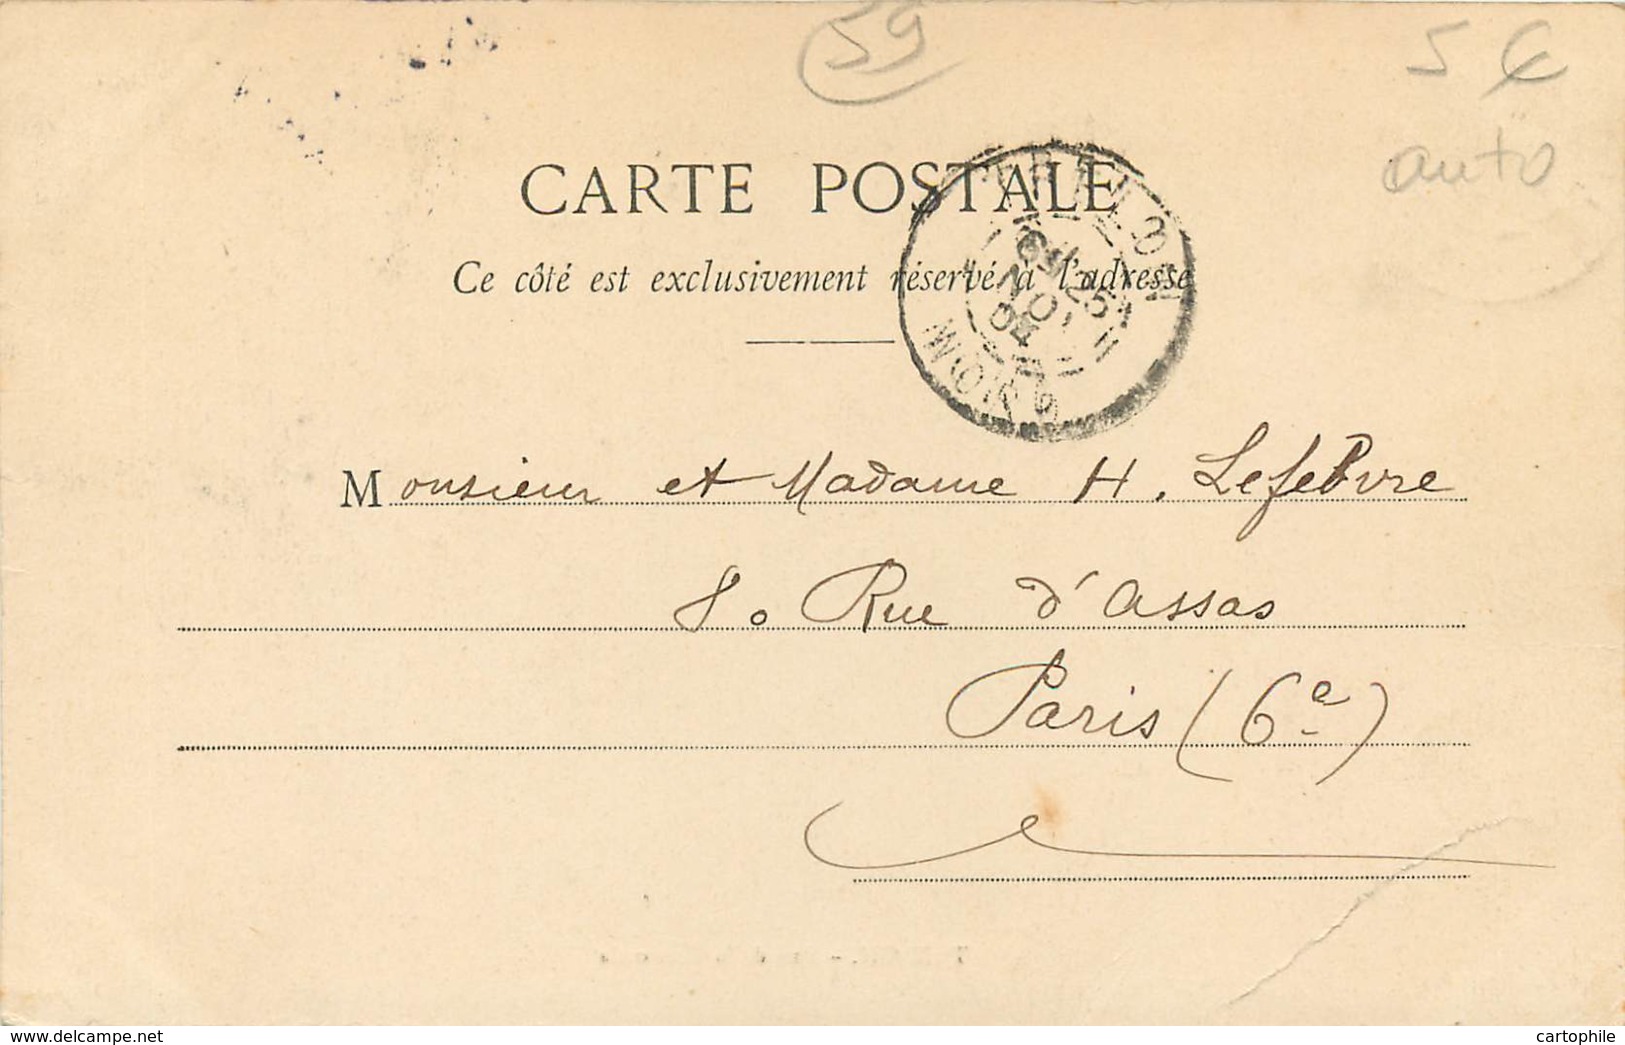 59
5 €
auto
CARTE POSTALE
Ce côté est exclusivement réservé à l'adresse
25
NO
04
Monsieur et Madame H. Lefebvre
80 Rue d'Assas
Paris (6e)
www.delcampe.net
cartophile